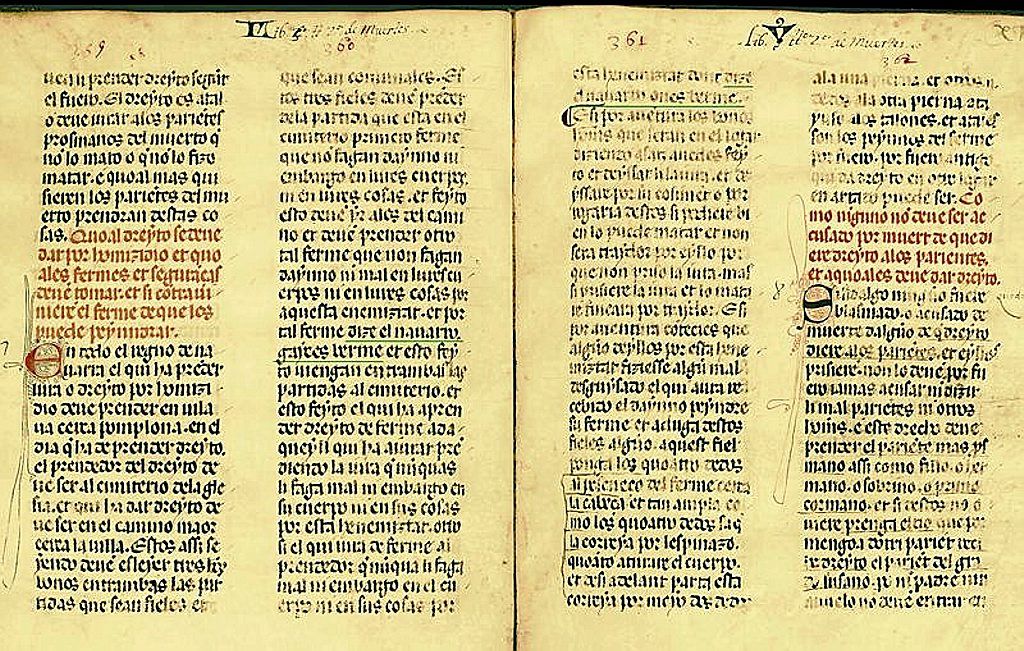 359
Lib. 5 tt 2º de Muertes
360
uen a prender dreyto segunt
el fuero. Si dreyto es atal
o deue iurar alos parietes
prosmanos del muerto q
no lo mato o q no lo fizo
matar. e quoal mas qui
sieren los parietes del mu
erto prendran destas co
sas. Quoal dreyto se deue
dar por homizidio et quo
ales fermes et segurācas
deue tomar. et si cōtra ui
niere el ferme de que los
puede peyndrar.
En todo el regno de na
uarra el qui ha prēder
iura o dreyto por homizi
dio deue prender en uila
ua cerca pomplona. en el
dia q ha de prender dreyto.
el prendedor del dreyto de
ue ser al cimiterio dela gle
sia. et qui ha dar dreyto de
ue ser en el camino maor
cerca la uilla. Estos assi se
yendo deuē esleyer tres ho
bonos entrambas las par
tidas que sean fieles et
que sean comunales. Et
los tres fieles deuē prēder
dela partida que esta en el
cimiterio primero ferme
que no fagan daynno ni
embargo en lures cuerpos
ni en lures cosas. et feyto
esto deuē yr ales del cami
no et deuē prender otro
tal ferme que non fagan
daynno ni mal en lures cu
erpos ni en lures cosas por
aquesta enemiztat. et por
tal ferme dize el nauarro.
gayces berme et esto fey
to uiengan entrambas las
partidas al cimiterio. et
esto feyto el qui ha apren
der dreyto de ferme ada
queyll qui ha aiurar pre
diendo la iura q nunquas
li faga mal ni embargo en
su cuerpo ni en sus cosas
por esta henemiztat. otro
si el qui iura de ferme al
prendedor q nunqua li faga
mal ni embargo en el cu
erpo ni en sus cosas por
361
Lib. 5 tt 2º de Muertes
362
esta henemiztat dont dize
el nauarro ones berme.
Et si por auetura los bonos
homs que ieran en el logar
diziendo asaz auedes fey
to et deyssar la iura. et de
yssare por su cosimet o por
rogaria destos si pediere bi
en lo puede matar et non
sera traydor por eyllo por
que non priso la iura. mas
si prisiere la iura et lo mata
re fincara por traydor. Et si
por auentura cotecies que
alguo deyllos por esta hene
miztat fiziesse algu mal
desguysado el qui aura re
cebido el daynno peyndre
su ferme et aduga destos
fieles alguo. aquest fiel
ponga los quoatro dedos
al pescueco del ferme cerca
la cabeca et tan ampla co
mo los quoatro dedos saq
la correya por lespinazo.
quoāto aturare el cuerpo.
et desi adelant parta esta
correya por meyo dos dedos
ala una pierna. et otros
dedos ala otra pierna ata
yuso alos taillones. et atales
son los peynnos del ferme
por fuero. por fuero antigo
qui da dreyto en otro logar
en artito puede ser. Co
mo ninguno no deue ser ac
cusado por muert de que di
ere dreyto alos parientes.
et aquoales deue dar dreyto.
8
Si fidalgo ninguno fuere
blasmado. o acusado de
muerte dalguo de q dreyto
diere alos parietes. et eyllos
prisiere no lo deue por fu
ero iamas acusar ni dizir
li mal parietes ni otros
homs. e este drecho deue
prender el pariete mas ps
mano assi como fillo. o ier
mano. o sobrino. o primo
cormano. et si destos no o
uiere prenga el tio que por
mengoa dotri pariet deci
de dreyto el pariet del gra
do susano. pero ni padre nin
auuelo no deue entrar en